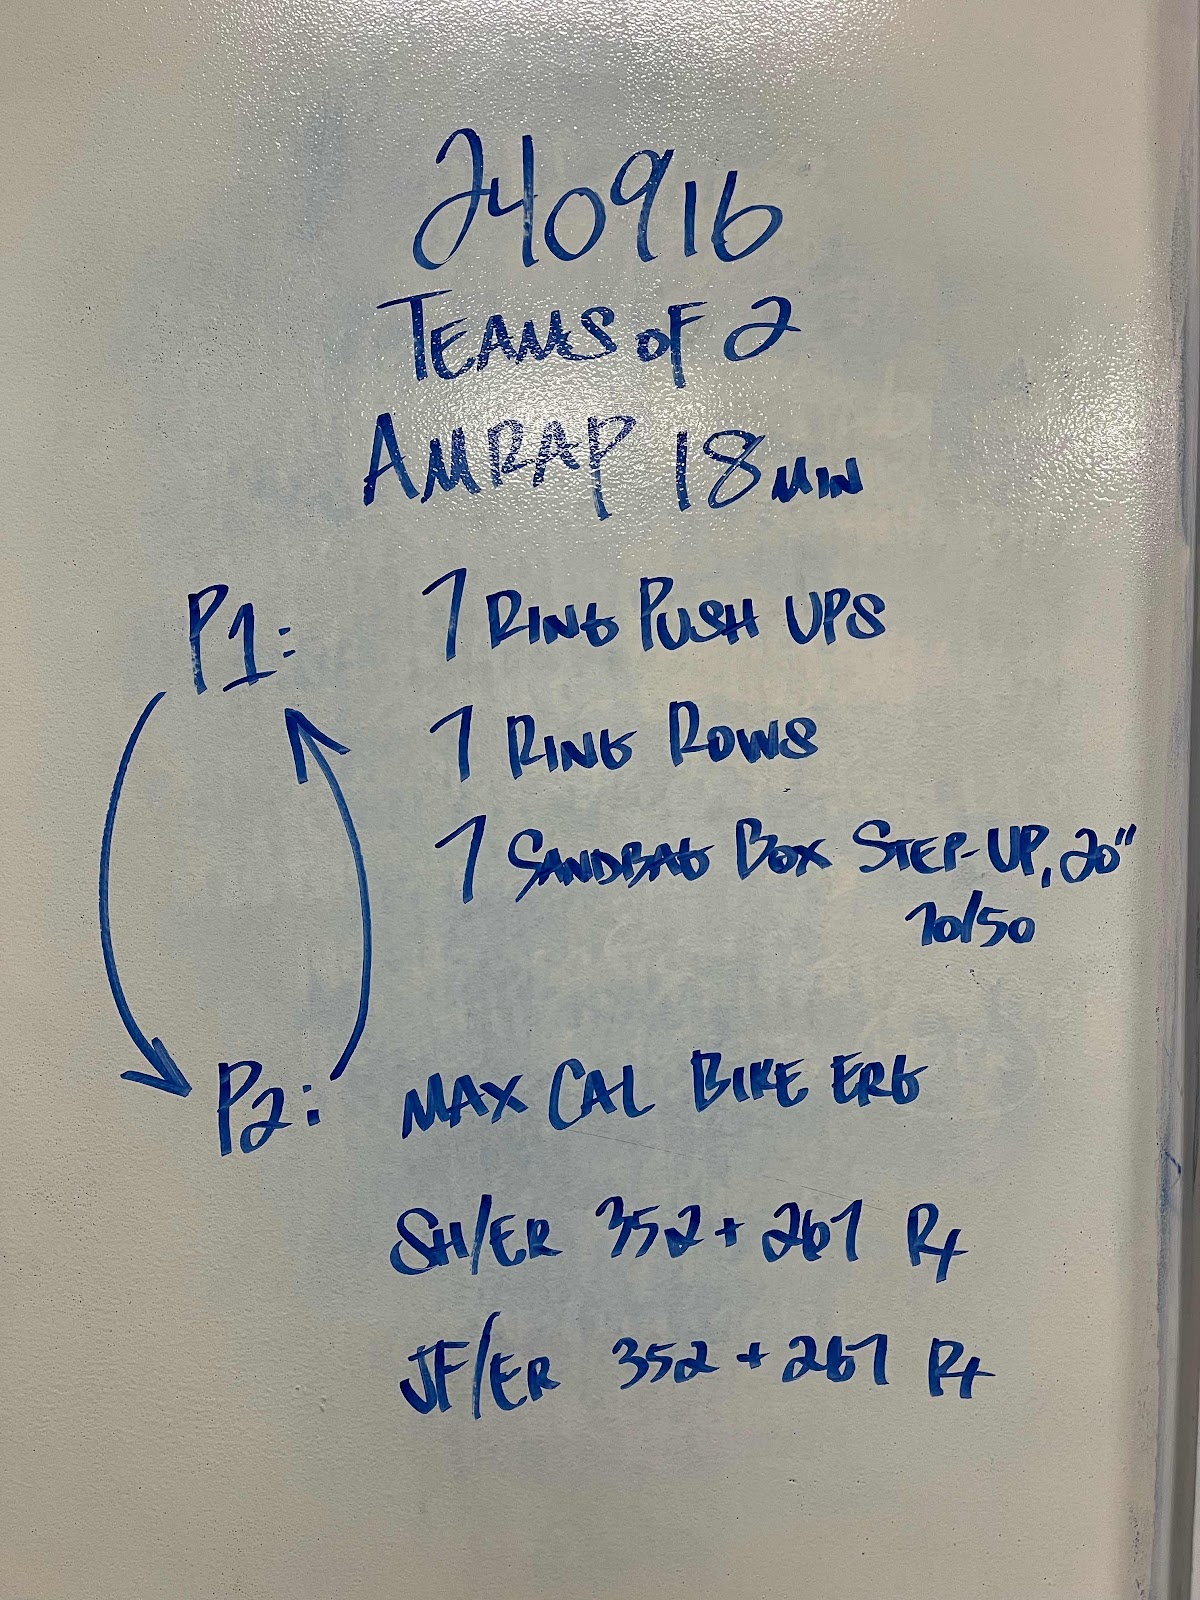 240916
TEAMS OF 2
AMRAP 18 MIN
P1: 7 RING PUSH UPS
7 RING ROWS
7 SANDBAG BOX STEP-UP, 20"
70/50
P2: MAX CAL BIKE ERG
SH/ER 352 + 267 R+
JF/ER 352 + 267 R+